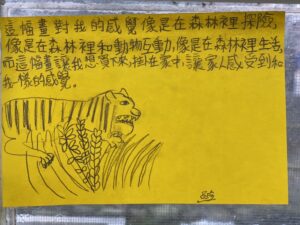 這幅畫對我的感覺像是在森林裡探險,
像是在森林裡和動物互動,像是在森林裡生活,
而這幅畫讓我想買下來,掛在家中,讓家人感受到和
我一樣的感覺。